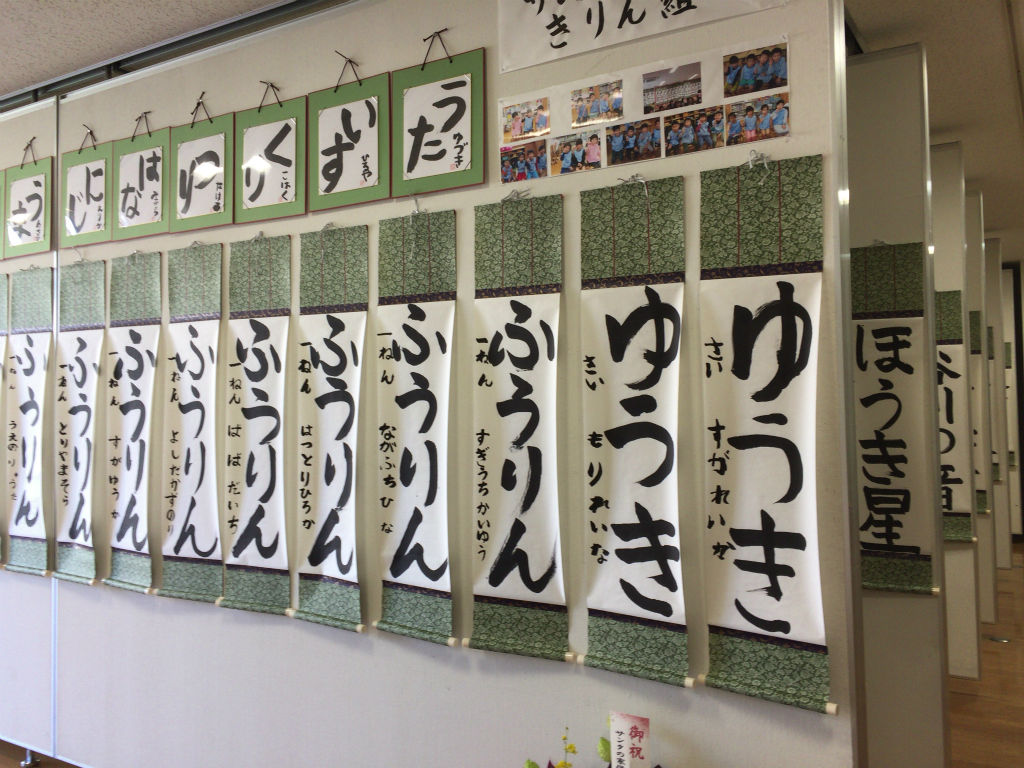 きりん組
うた
ゆづき
いす
くり
こはく
つり
はな
にじ
うま
ゆうき
さい すがれいが
ゆうき
さい もりれいな
ふうりん
一ねん すぎうちかいゆう
ふうりん
一ねん ながふちひな
ふうりん
一ねん はっとりひろか
ふうりん
一ねん はばだいち
ふうりん
一ねん よしたかずのり
ふうりん
一ねん すがゆうか
ふうりん
一ねん とりやまそら
ふうりん
一ねん うえのりうた
ほうき星
御祝